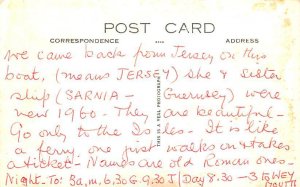 POST CARD
CORRESPONDENCE ADDRESS
We came back from Jersey on this
boat, (means JERSEY) she & sister
ship (SARNIA - Guernsey) were
new 1960 - They are beautiful -
Go only to the Isles. It is like
a ferry, one just walks on & takes
a ticket - Names are old Roman ones.
Night. To: 3a,m, 6,30 G. 9.30 J | Day 8:30 - 3 to WEY
THIS IS A REAL PHOTOGRAPH